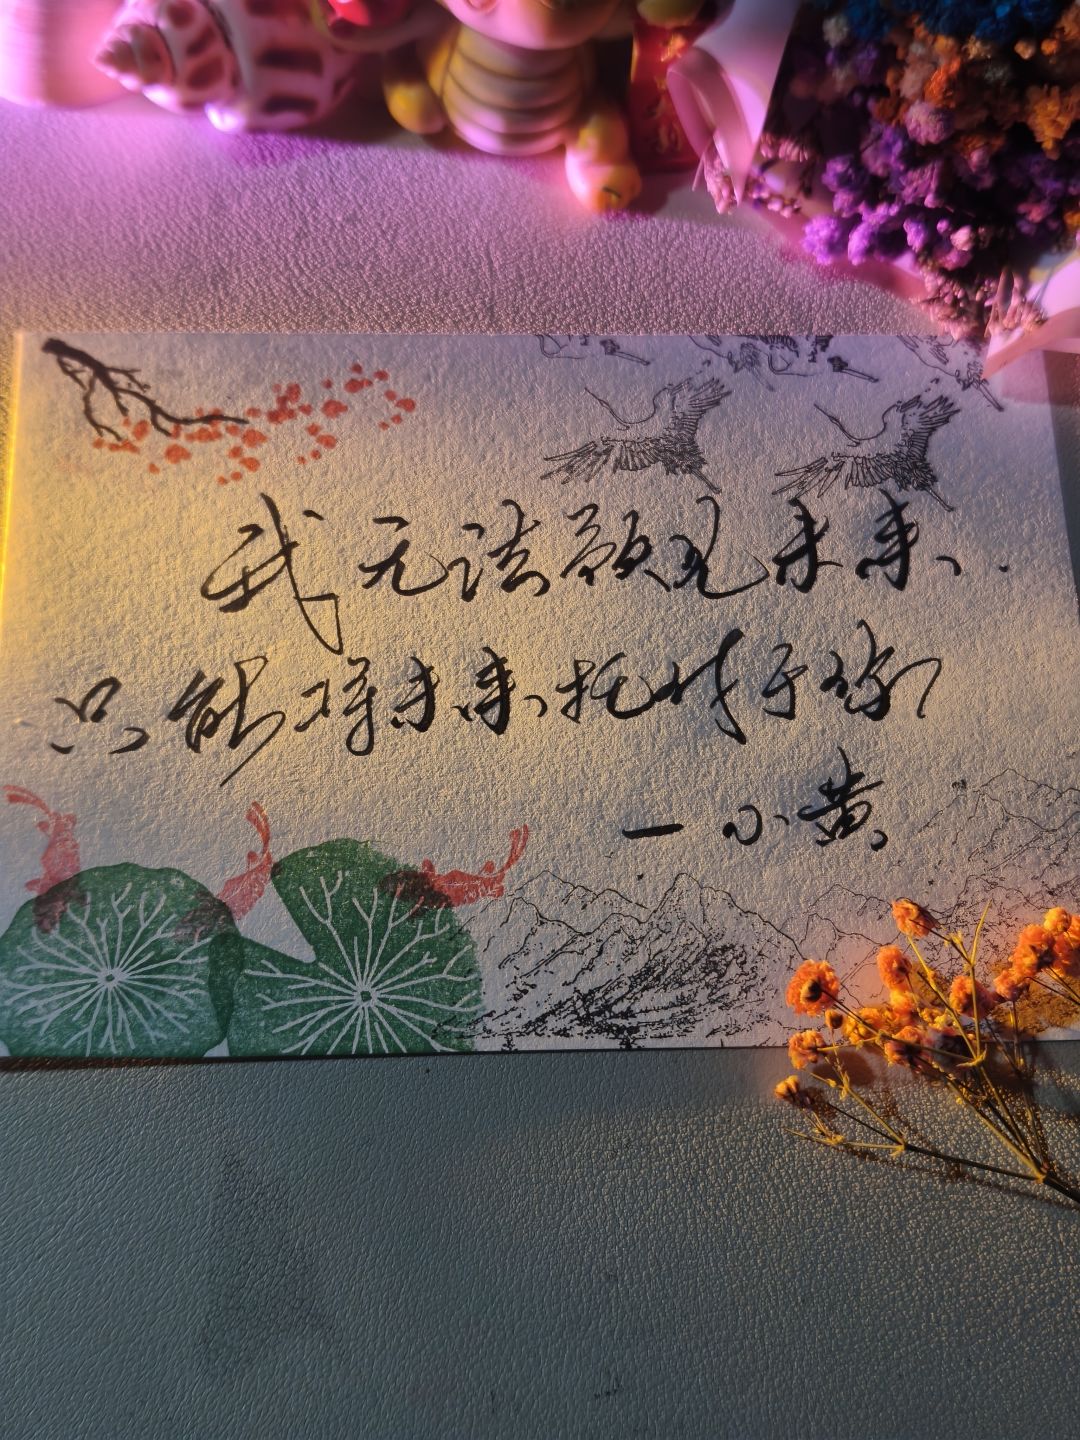 我无法预见未来.
只能将未来托付于你
一小黄